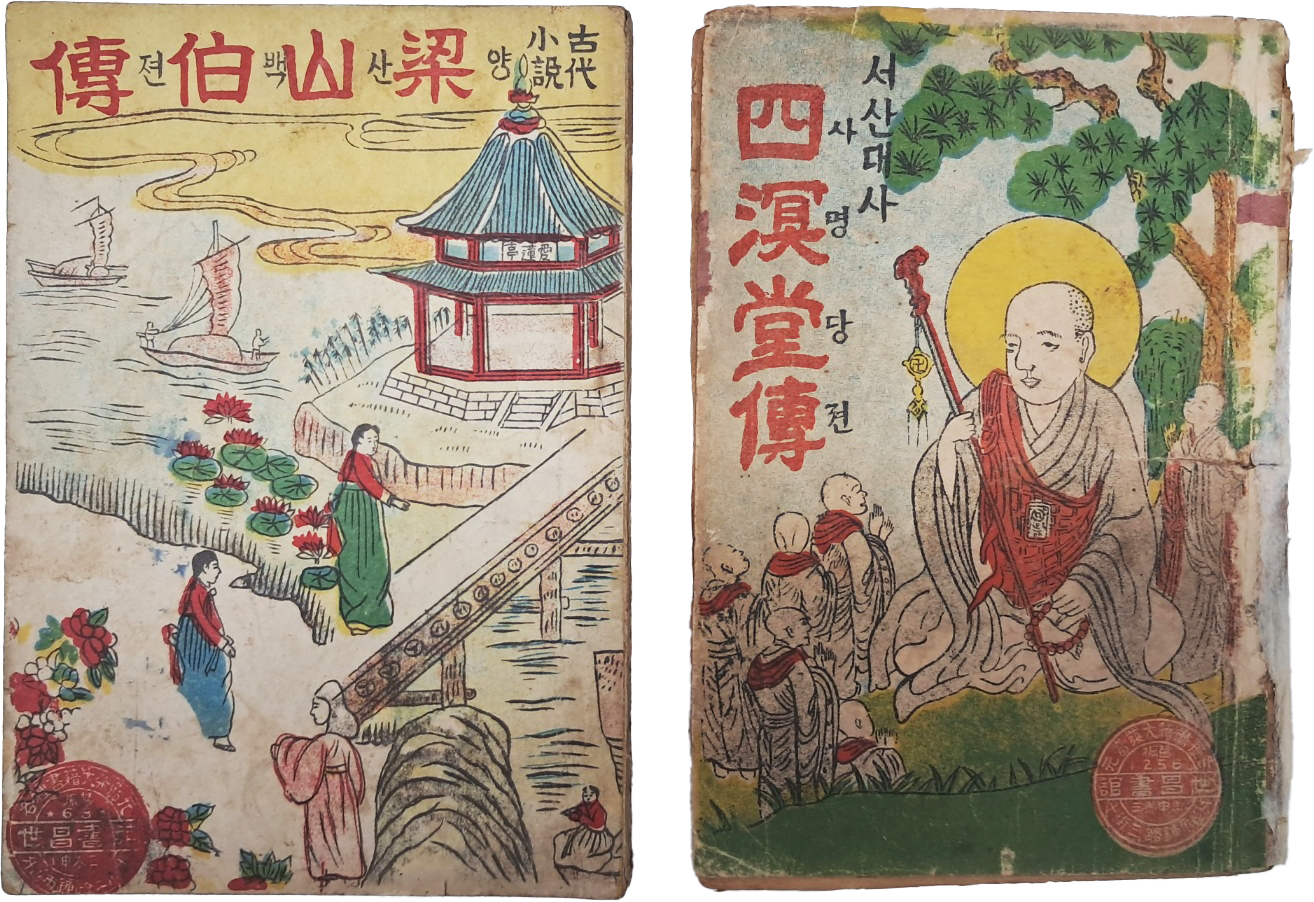 古代
小說
梁山伯傳
양산백젼
愛蓮亭
世昌書館
서산대사
四溟堂傳
사명당젼
世昌書館